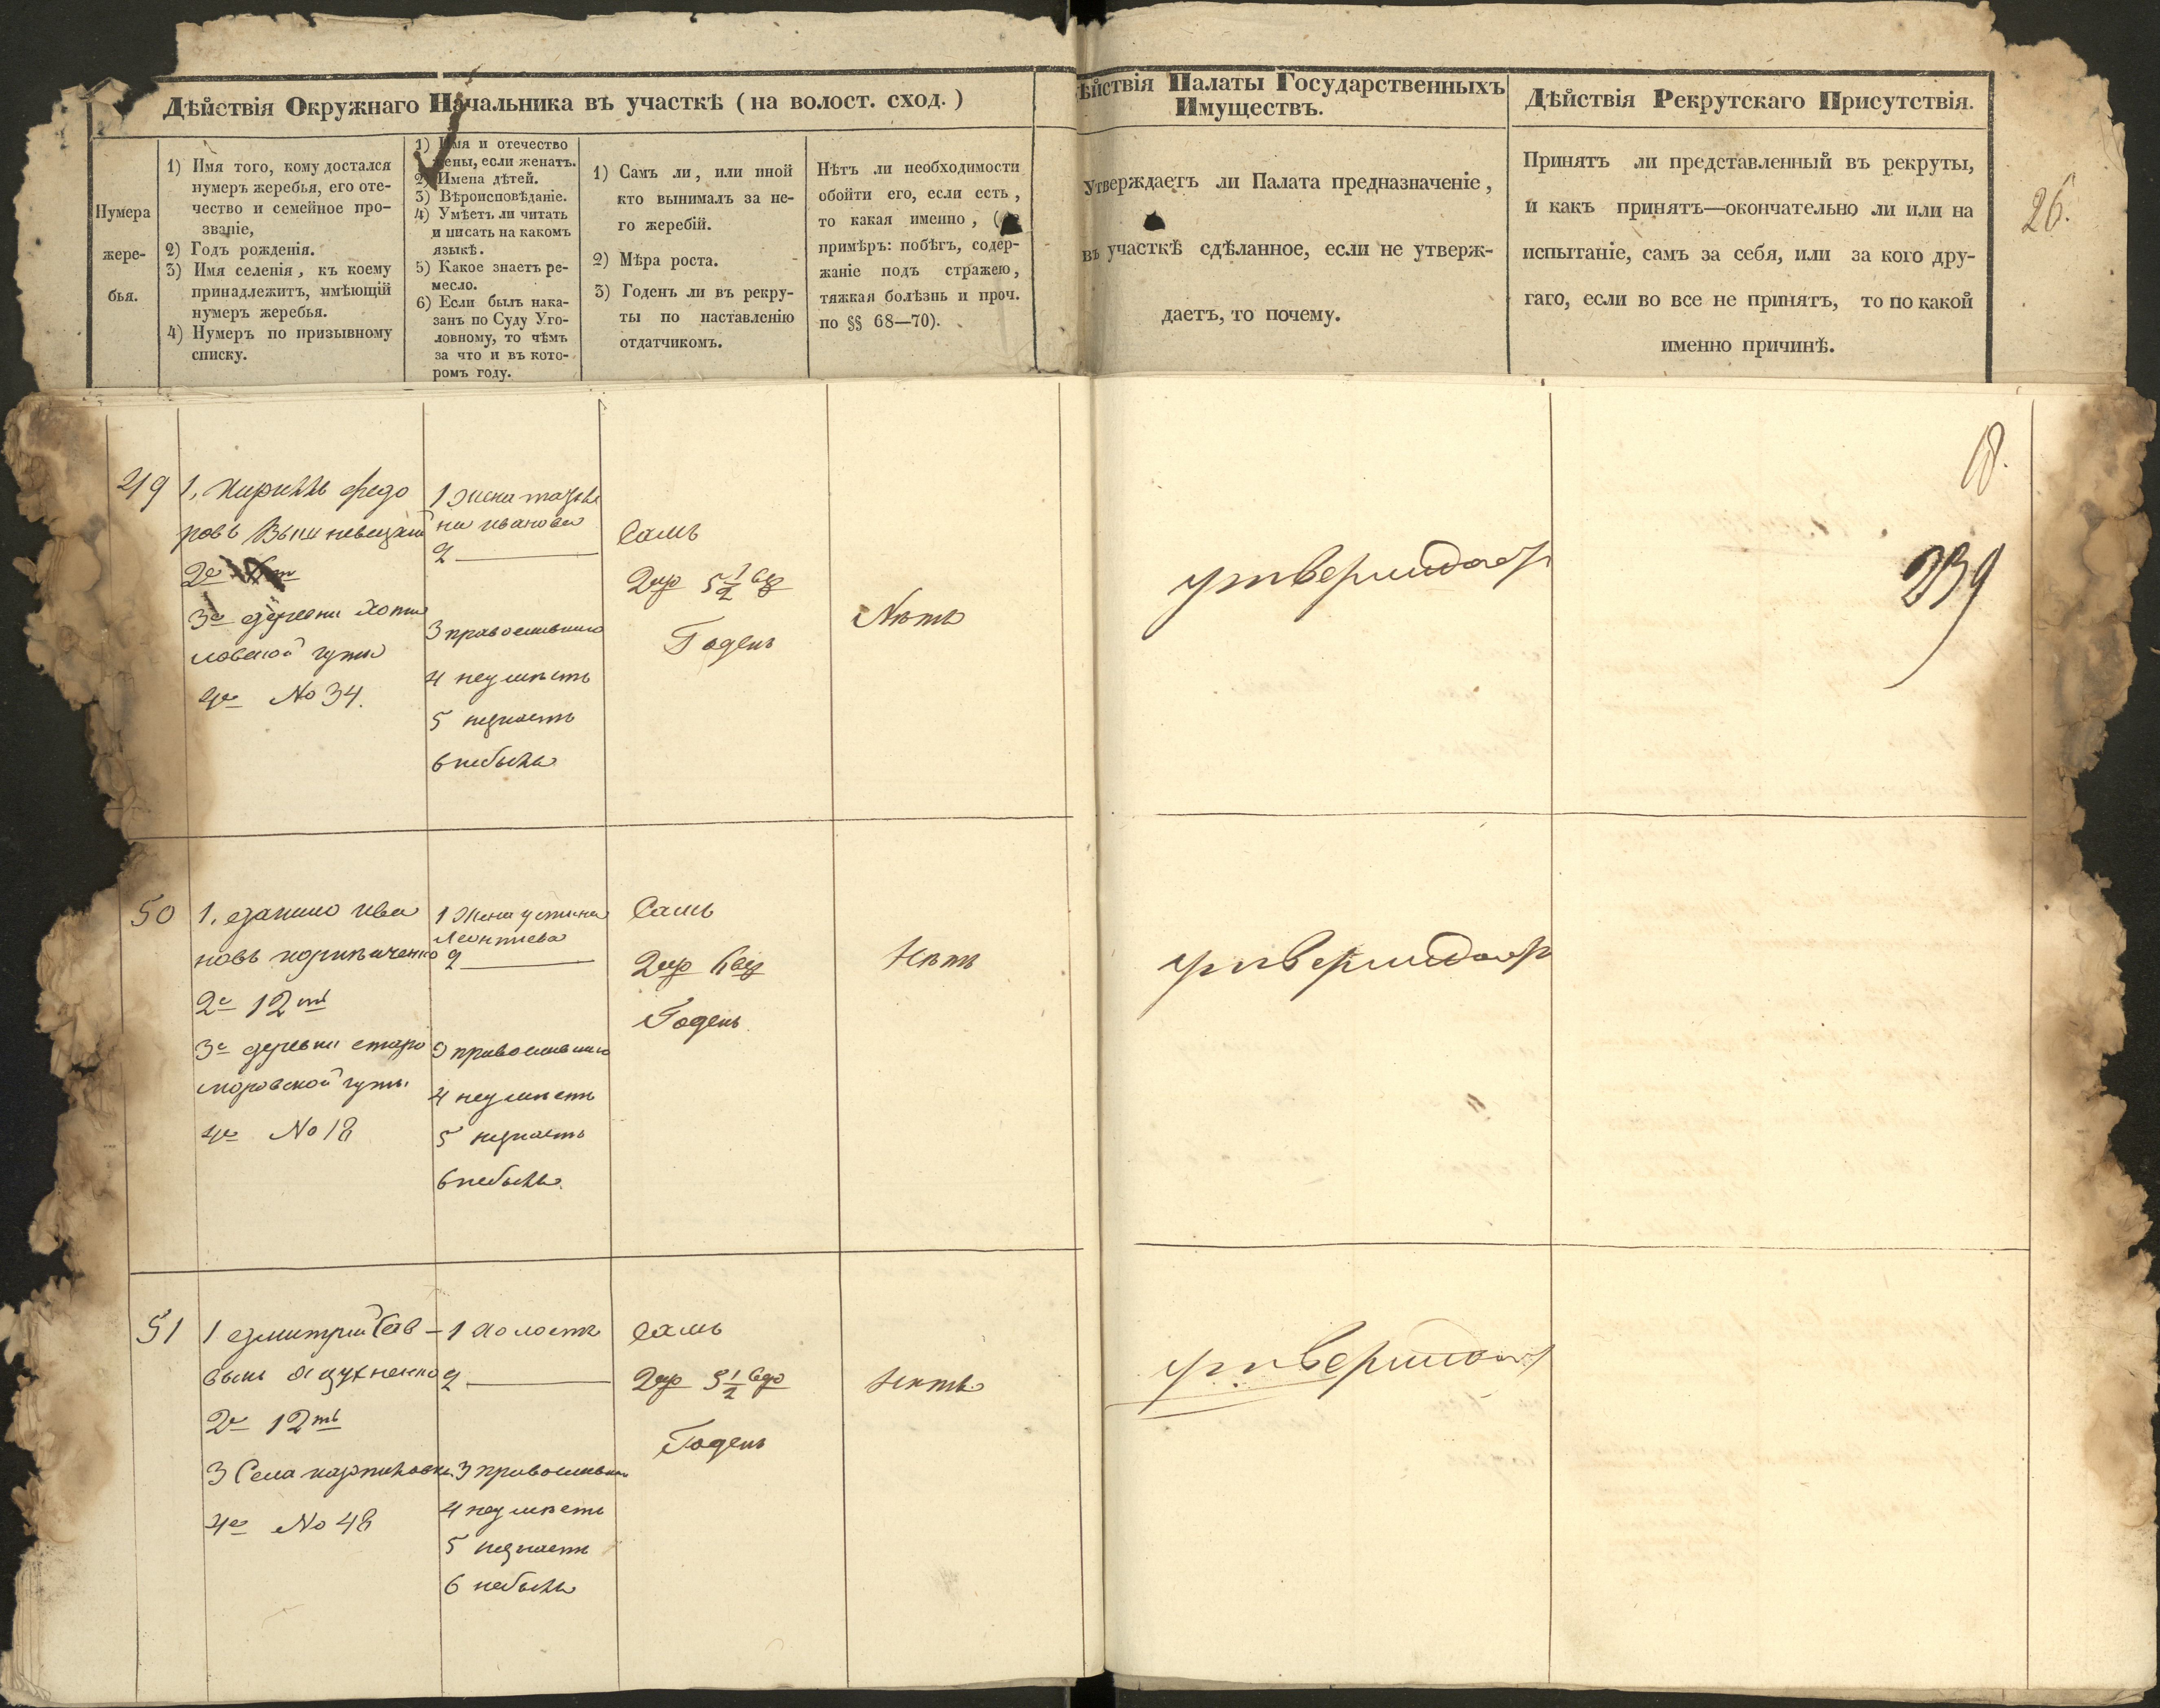 Дѣйствія Окружнаго Начальника въ участкѣ (на волост. сход.)
Нумера
жере-
бья.
1) Имя того, кому достался
нумеръ жеребья, его оте-
чество и семейное про-
званіе,
2) Годъ рожденія.
3) Имя селенія, къ коему
принадлежитъ, имѣющій
нумеръ жеребья.
4) Нумеръ по призывному
списку.
1) Имя и отечество
жены, если женатъ.
2) Имена дѣтей.
3) Вѣроисповѣданіе.
4) Умѣетъ ли читать
и писать на какомъ
языкѣ.
5) Какое знаетъ ре-
месло.
6) Если былъ нака-
занъ по Суду Уго-
ловному, то чѣмъ
за что и въ кото-
ромъ году.
1) Самъ ли, или иной
кто вынималъ за не-
го жеребій.
2) Мѣра роста.
3) Годенъ ли въ рекру-
ты по наставленію
отдатчикомъ.
Нѣтъ ли необходимости
обойти его, если есть,
то какая именно, (
примѣръ: побѣгъ, содер-
жаніе подъ стражею,
тяжкая болѣзнь и проч.
по §§ 68—70).
ѣйствія Палаты Государственныхъ
Имуществъ.
Утверждаетъ ли Палата предназначеніе,
въ участкѣ сдѣланное, если не утверж-
даетъ, то почему.
Дѣйствія Рекрутскаго Присутствія.
Принятъ ли представленный въ рекруты,
и какъ принятъ—окончательно ли или на
испытаніе, самъ за себя, или за кого дру-
гаго, если во все не принятъ, то по какой
именно причинѣ.
26.
49
1, Кириллъ Федо
ровъ
2е
3е деревни
гуты
4е No 34.
1 Жена
на Иванова
2
3 православнаго
4 неумѣетъ
5 незнаетъ
6 небылъ
Самъ
2 ар 5 1/2 вер
Годенъ
Нѣтъ
утверждает
239
50
1, Данило Ива
новъ
2е 12ть
3е деревни старо
гуты
4е No 18
1 Жена Устина
Леонтиева
2
3 православнаго
4 неумѣетъ
5 незнаетъ
6 небылъ
Самъ
2 ар 6 вер
Годенъ
Нѣтъ
утверждает
51
1 Дмитрий Сав-
2е 12ть
3 Села Карпиловки
4е No 48
1 Холостъ
2
3 православна
4 неумѣетъ
5 незнаетъ
6 небылъ
Самъ
2 ар 5 1/2 вер
Годенъ
Нѣтъ
утверждает